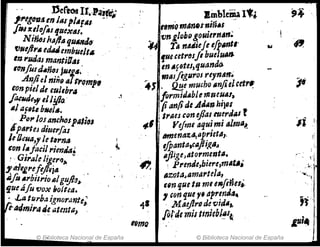 Defeos II. Parte,
pregona en las plaças
sus zelosas quexas.
Niños hasta quando
vuestra edad embuelta
en rudas mantillas
consus daños juega.
Ansi el niño al trompo
con piel de culebra
sacude, y el
al açote buela.
Por los anchos patios
a partes diuersas
le lleua, y le torna
con la facil rienda;
Girale ligero,
y alegre festeja
a su arbitrio al gusto,
que a su vox boltea.
La turba ignorante,
se admira de atenta,
como
Emblema IV.
94
como manos niñas
vn globo gouiernan.
44
Ya nadie se espante
que cetros se buelua
en açotes, quando
mas seguros reynan.
45
Que mucho ansi el cetro
formidable mueuas,
si ansi de Adan hijas
traes con essas cuerdas?
46
Vesme aqui mi alma,
amenaza, aprieta,
espanta, castiga,
aflige, atormenta.
47
Prende, hiere, mata;
azota, amartela,
con que tu me enseñes,
y con que yo aprenda,
48
Mastro de vida,
sol de mis tinieblas,
guia
© Biblioteca Nacional de España
© Biblioteca Nacional de España